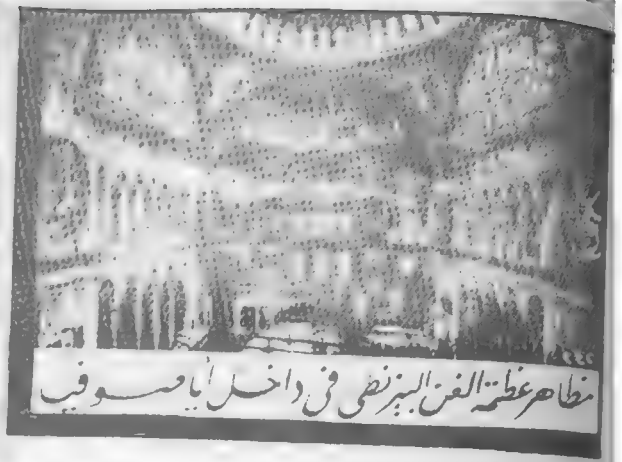 مظاهر عظمة الفن البيزنطي في داخل أيا صوفيا